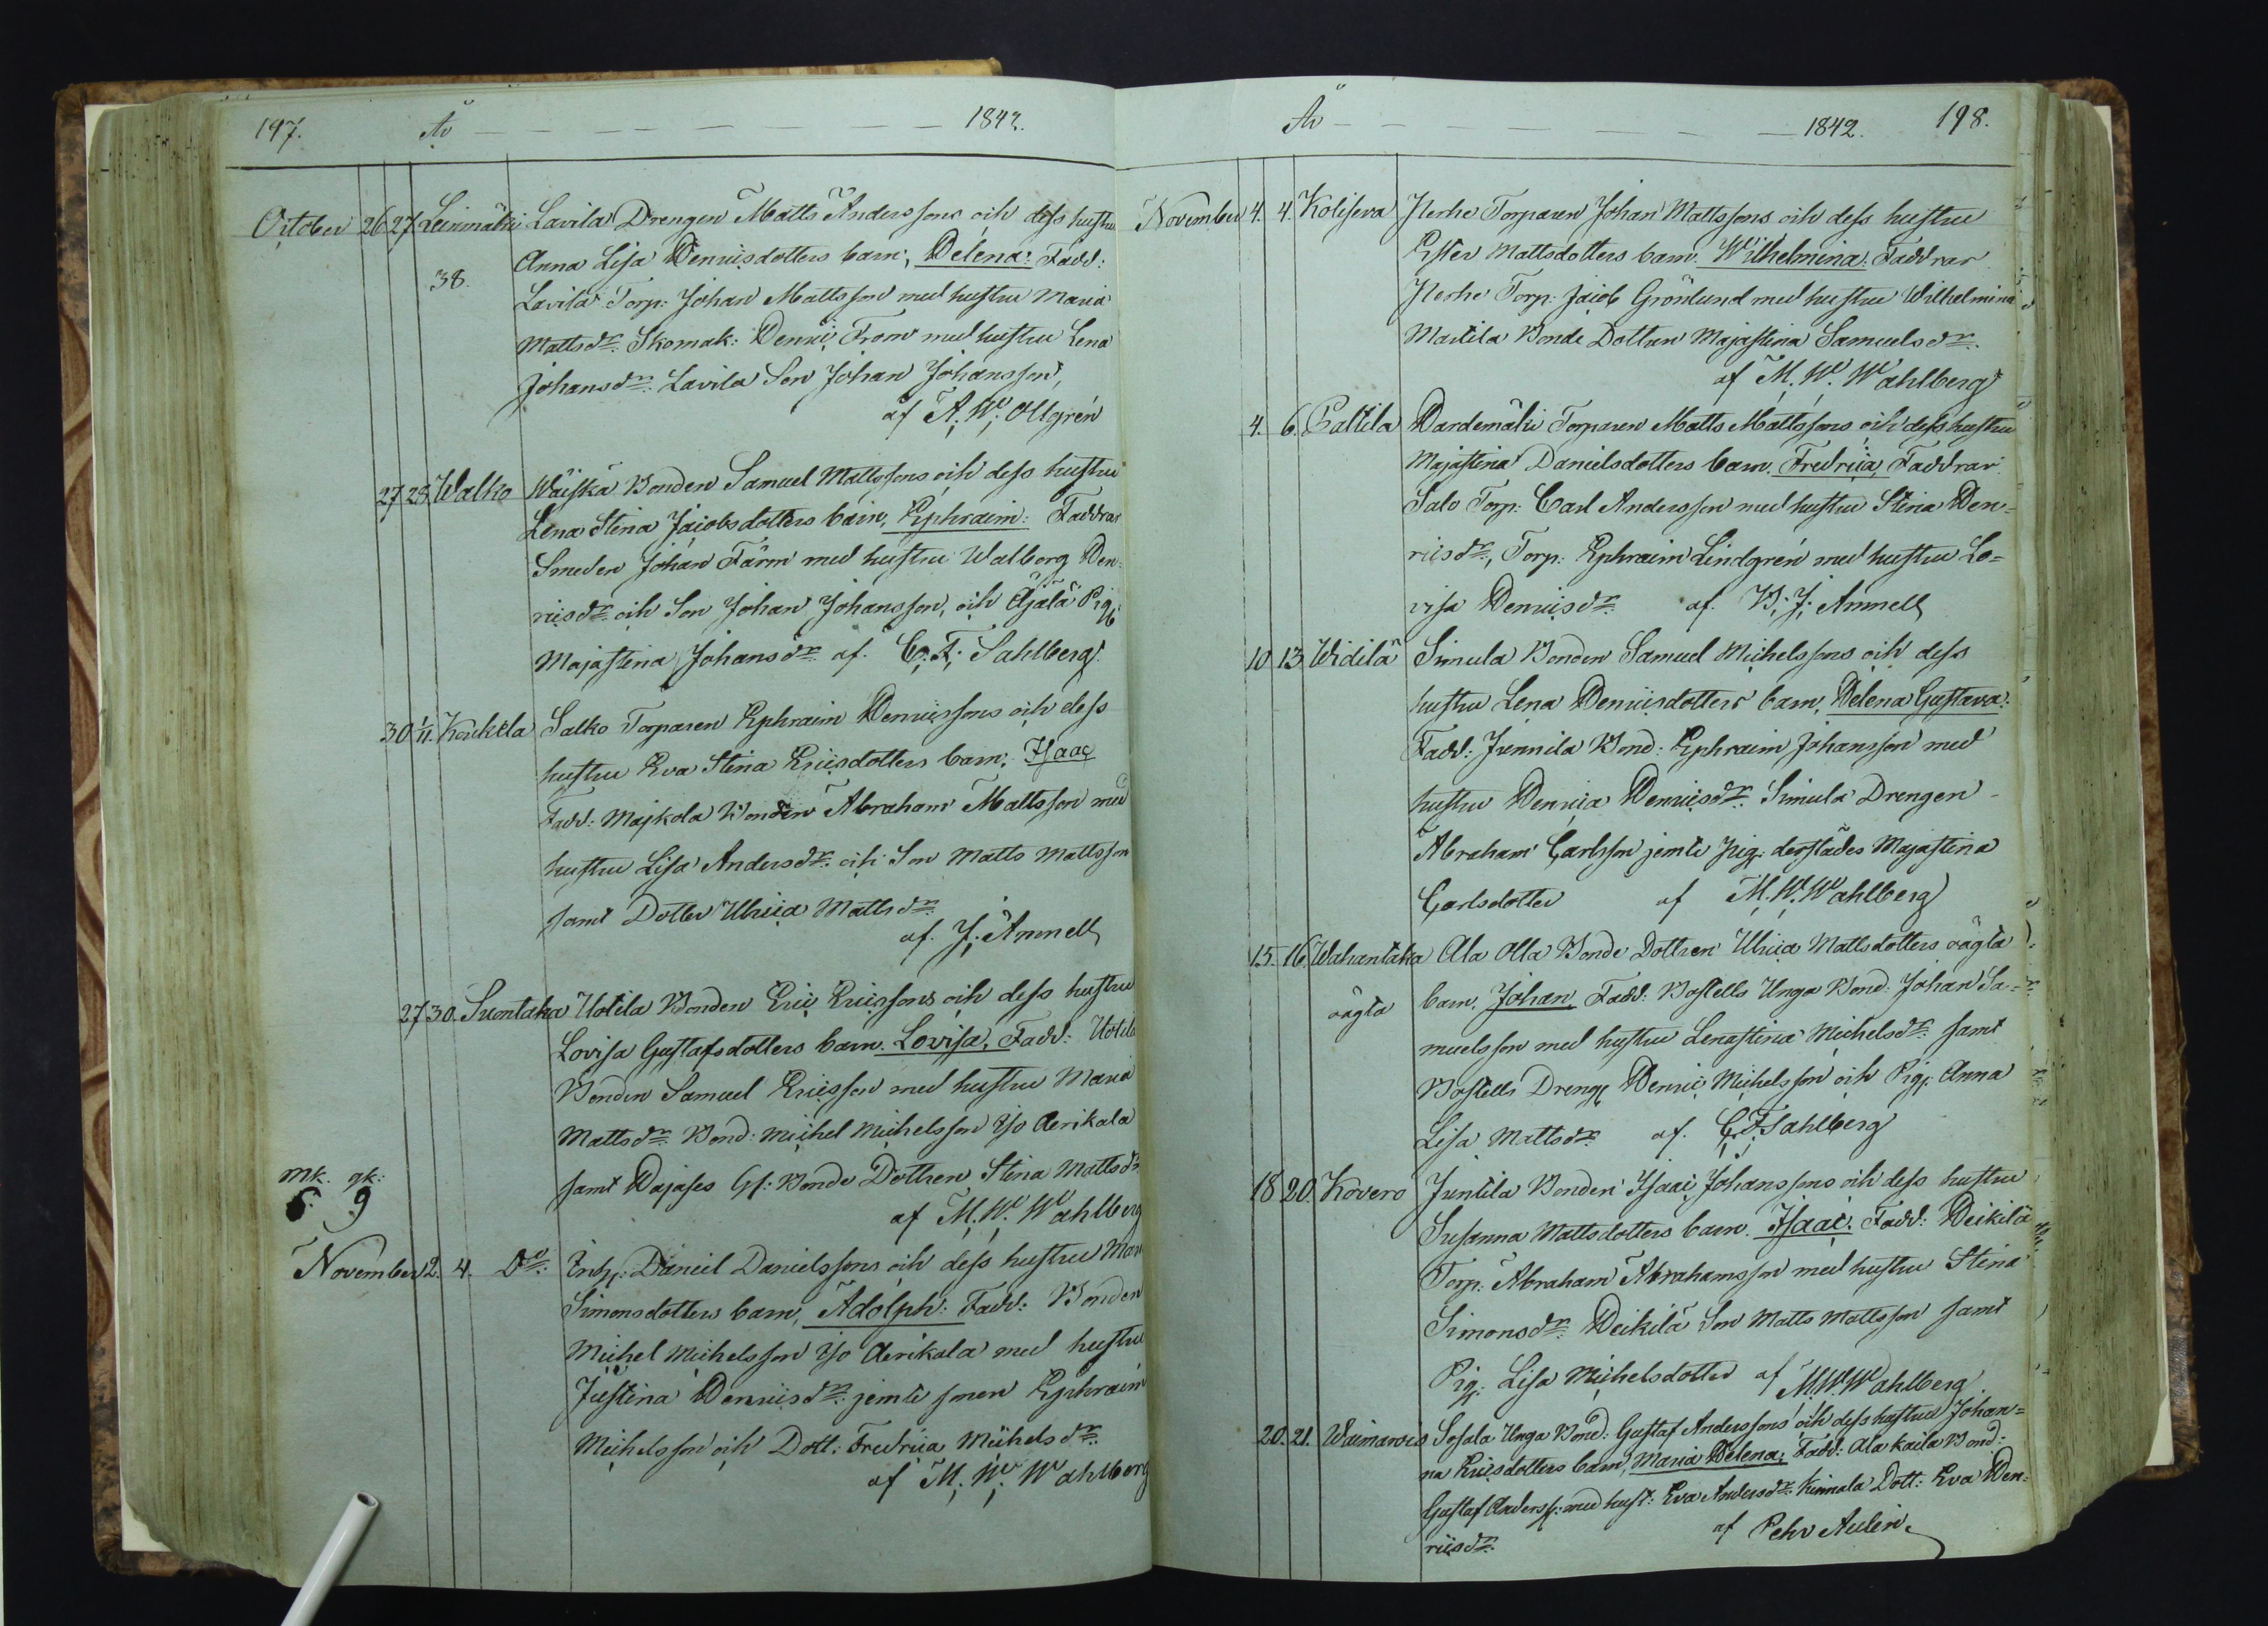 197. År 1842.
October 26 27 Leinmäki Lavila Drengen Matts Anderssons och dess hustru
Anna Lisa Henricsdotters barn, Helena: Fadd:
38. Lavila Torp: Johan Mattsson med hustru Maria
Mattsdr. Skomak: Henric From med hustru Lena
Johansdr. Lavila Son Johan Johansson,
af A. W. Ollgrén
27 28. Walko Wäiskä Bonden Samuel Mattssons och dess hustru
Lena Stina Jacobsdotters barn, Ephraim: Faddrar
Smeden Johan Färm med hustru Walborg Hen-
ricsdr. och Son Johan Johansson, och Äjälä Pig:
Majastina Johansdr. af C. F. Sahlberg.
30 1/11. Kouckela Salko Torparen Ephraim Henricssons och dess
hustru Eva Stina Ericsdotters barn, Isaac
Fadd: Majkola Bonden Abraham Mattsson med
hustru Lisa Andersdr. och Son Matts Mattsson
samt Dotter Ulrica Mattsdr.
af J. Amnell
27 30. Suontaka Uotila Bonden Eric Ericssons och dess hustru
Lovisa Gustafsdotters barn. Lovisa, Fadd: Uotila
Bonden Samuel Ericsson med hustru Maria
Mattsdr. Bond: Michel Michelsson Iso Aerikala
Mk. qk: samt Dottren Stina Mattsdr.
6. 9 af M. W. Wahlberg
November 2. 4. Do: Inh: Daniel Danielssons och dess hustru Maria
Simonsdotters barn, Adolph: Fadd: Bonden
Michel Michelsson Iso Aerikala med hustru
Justina Henricsdr. jemte sonen Ephraim
Michelsson och Dott: Fredrica Michelsdr.
af M. W. Wahlberg
År 1842. 198.
November 4. 4. Koliseva Nerhe Torparen Johan Mattssons och dess hustru
Ester Mattsdotters barn. Wilhelmina: Faddrar
Nerhe Torp: Jacob Grönlund med hustru Wilhelmina
Martila Bonde Dottren Majastina Samuelsdr.
af M. W. Wahlberg
4. 6. Paltila Hardemäki Torparen Matts Mattssons och dess hustru
Majastina Danielsdotters barn. Fredrica, Faddrar
Salo Torp: Carl Andersson med hustru Stina Hen=
ricsdr., Torp: Ephraim Lindgrén med hustru Lo=
visa Henricsdr. af B. J. Amnell
10 13 Widilä Simula Bonden Samuel Michelssons och dess
hustru Lena Henricsdotters barn, Helena Gustava:
Fadd: Junnila Bond: Ephraim Johansson med
hustru Henrica Henricsdr. Simula Drengen
Abraham Carlsson jemte pig: derstädes Majastina
Carlsdotter af M. W. Wahlberg
15. 16. Wahantaka Ala Olla Bonde Dottren Ulrica Mattsdotters oägta
oägta barn, Johan Fadd: Bostells Unga Bond: Johan Sa=
muelsson med hustru Lenastina Michelsdr. samt
Bostells Dreng: Henric Michelsson och Pig: Anna
Lisa Mattsdr. af C. F. Sahlberg
18 20. Kovero Juntila Bonden Isaac Johanssons och dess hustru
Susanna Mattsdotters barn. Isaac. Fadd: Heikilä
Torp: Abraham Abrahamsson med hustru Stina
Simonsdr. Heikilä Son Matts Mattsson samt
Pig: Lisa Michelsdotter af M. W. Wahlberg
20. 21. Waimarois Sosala Unga Bond: Gustaf Anderssons och dess hustru Johan=
na Ericsdotters barn, Maria Helena; Fadd: Ala Kaila Bond:
Gustaf Anderss: med hust: Eva Andersdr. Kinnala Dott: Eva Hen=
ricsdr. af Pehr Aulin